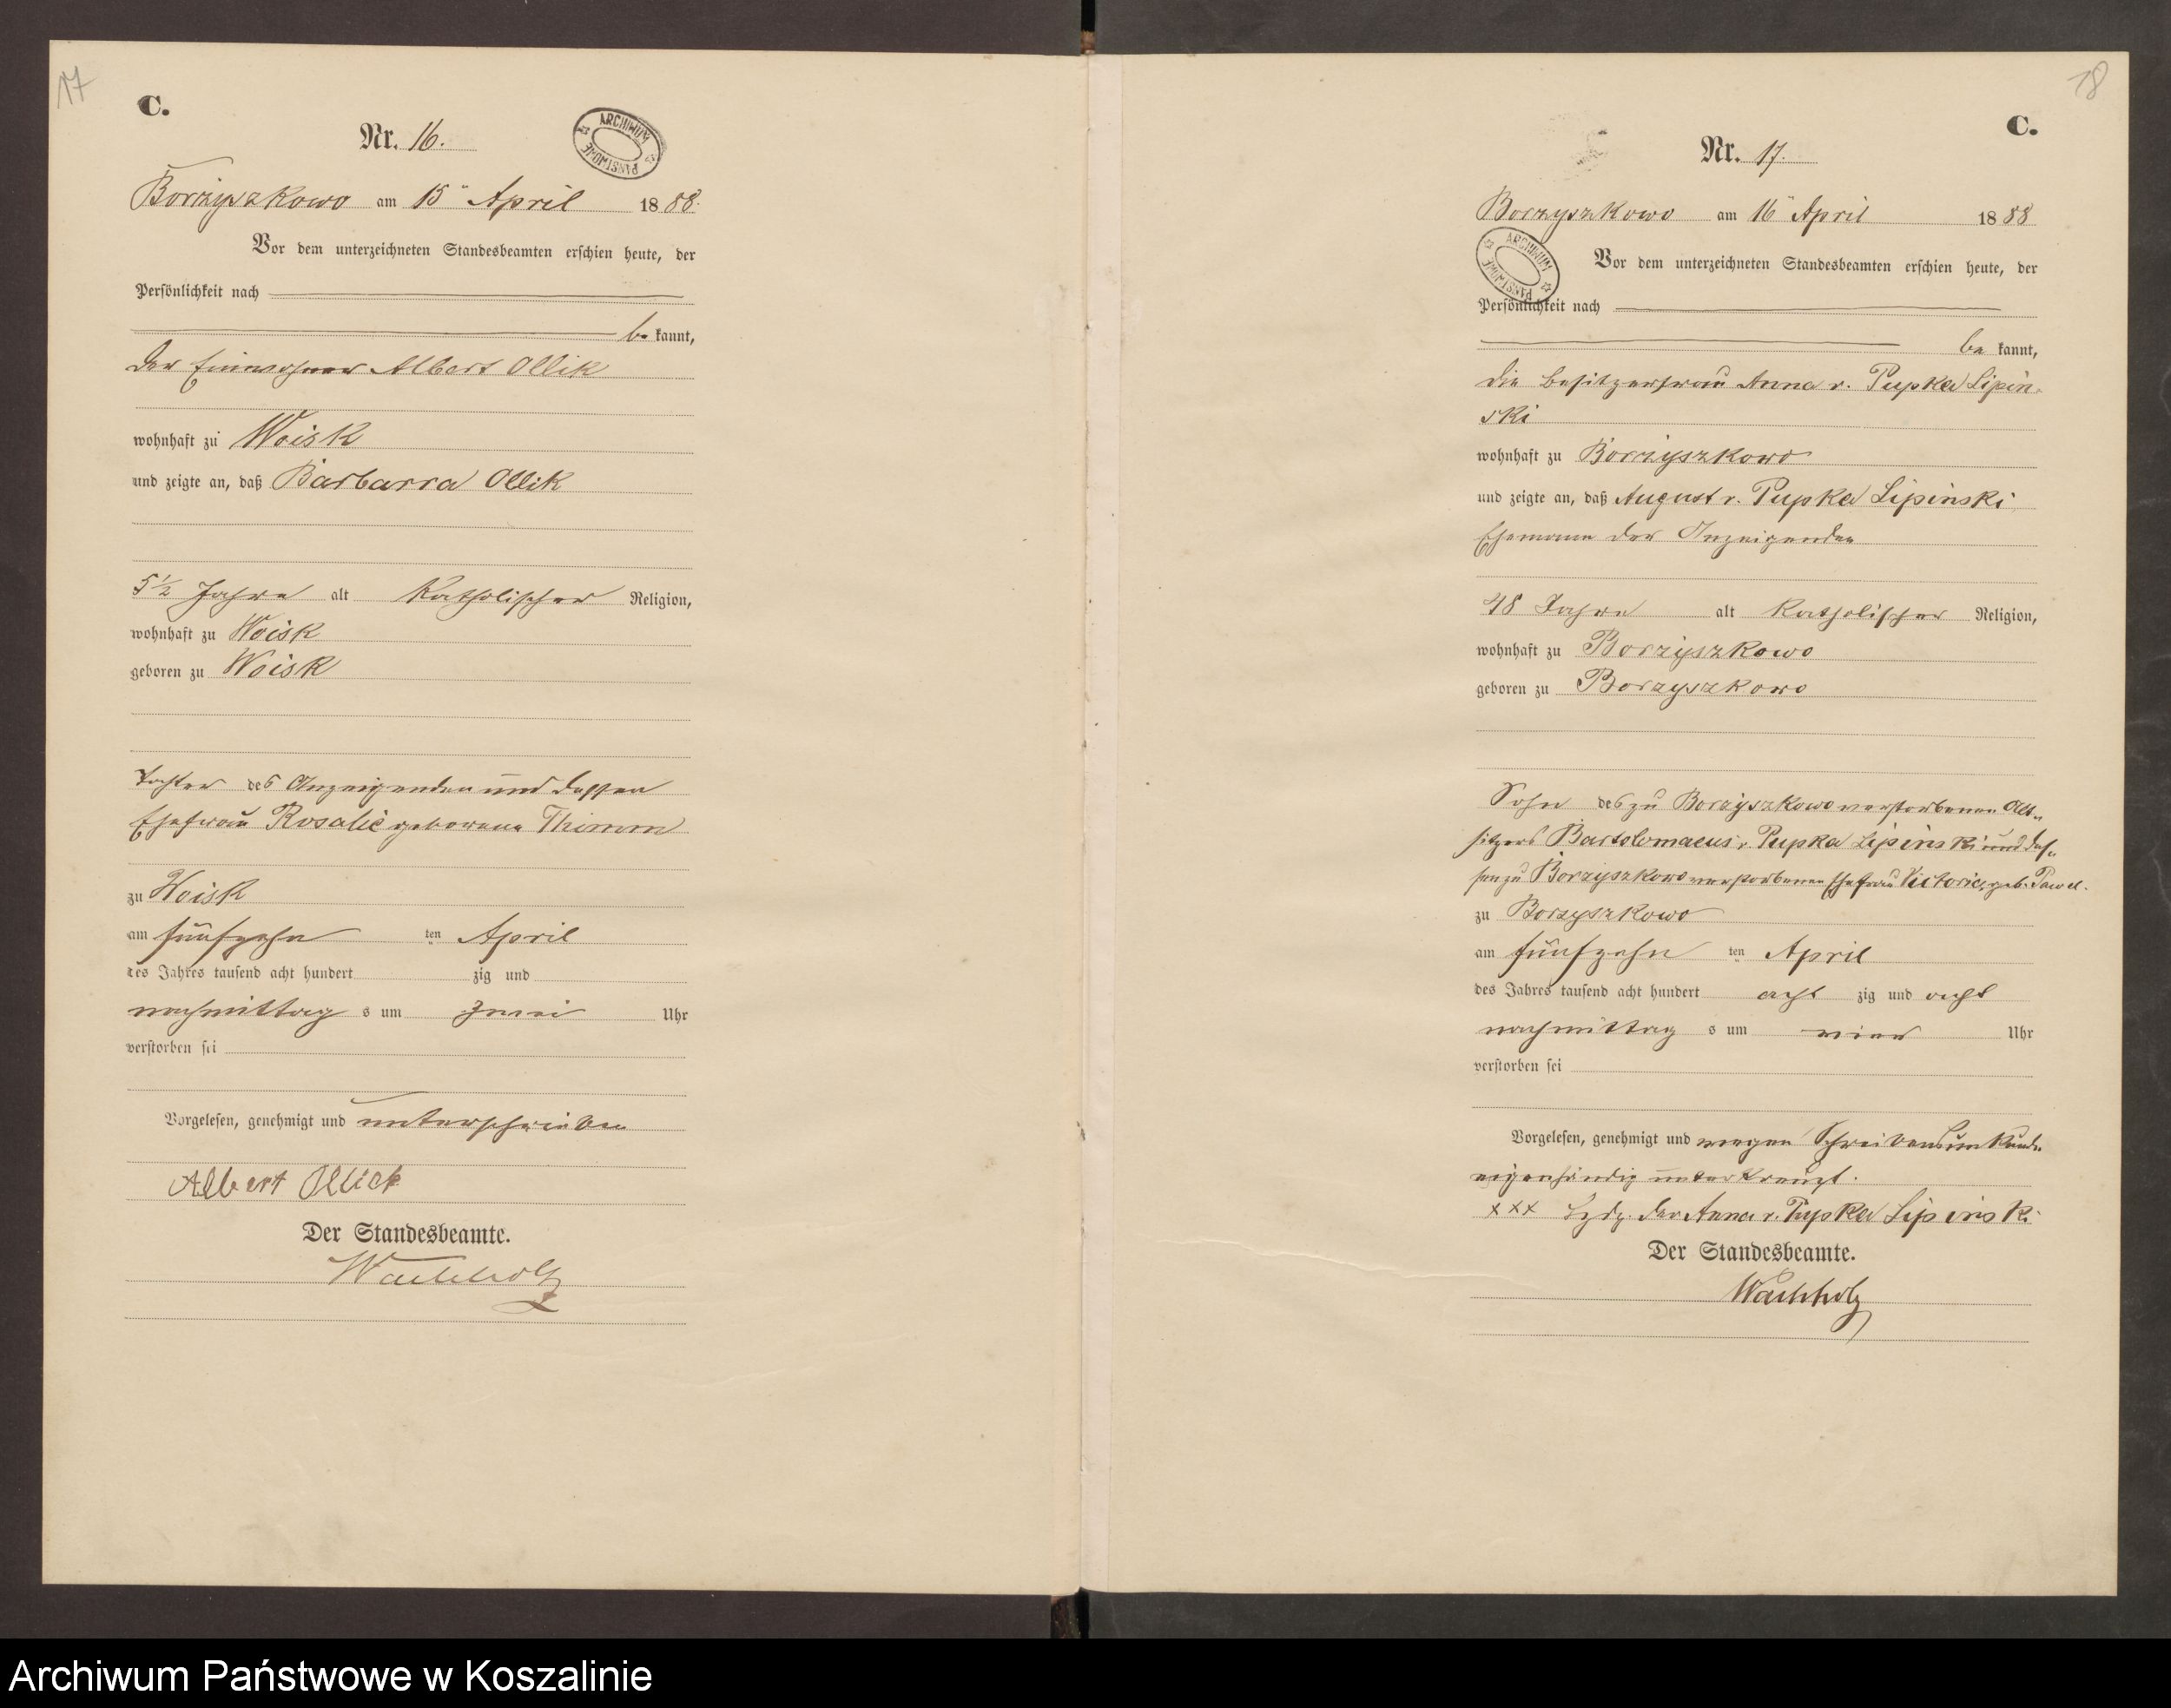 17
C.
Nr. 16.
ARCHIWUM PAŃSTWOWE
Borzyszkowo am 15ten April 1888.
Vor dem unterzeichneten Standesbeamten erschien heute, der
Persönlichkeit nach
be kannt,
der Einwohner Albert Ollik
wohnhaft zu Woisk
und zeigte an, daß Barbarra Ollik
5 1/2 Jahre alt Katholischer Religion,
wohnhaft zu Woisk
geboren zu Woisk
Tochter des Anzeigenden und dessen
Ehefrau Rosalie geborene Thimm
zu Woisk
am fünfzehn ten April
des Jahres tausend acht hundert zig und
nachmittag s um zwei Uhr
verstorben sei
Vorgelesen, genehmigt und unterschrieben
Albert Ollick
Der Standesbeamte.
Wachholz
18
C.
Nr. 17.
Borzyszkowo am 16ten April 1888
ARCHIWUM PAŃSTWOWE
Vor dem unterzeichneten Standesbeamten erschien heute, der
Persönlichkeit nach
be kannt,
die Besitzerfrau Anna v. Pupka Lipin-
ski
wohnhaft zu Borzyszkowo
und zeigte an, daß August v. Pupka Lipinski
Ehemann der Anzeigenden
48 Jahre alt Katholischer Religion,
wohnhaft zu Borzyszkowo
geboren zu Borzyszkowo
Sohn des zu Borzyszkowo verstorbenen Alt-
sitzers Bartolomaeus v. Pupka Lipinski und des-
sen zu Borzyszkowo verstorbenen Ehefrau Victoria, geb. Pawel.
zu Borzyszkowo
am fünfzehn ten April
des Jahres tausend acht hundert acht zig und acht
nachmittag s um vier Uhr
verstorben sei
Vorgelesen, genehmigt und wegen Schreibensunkunde
eigenhändig unterkreuzt.
xxx Hdzg. der Anna v. Pupka Lipinski
Der Standesbeamte.
Wachholz
Archiwum Państwowe w Koszalinie